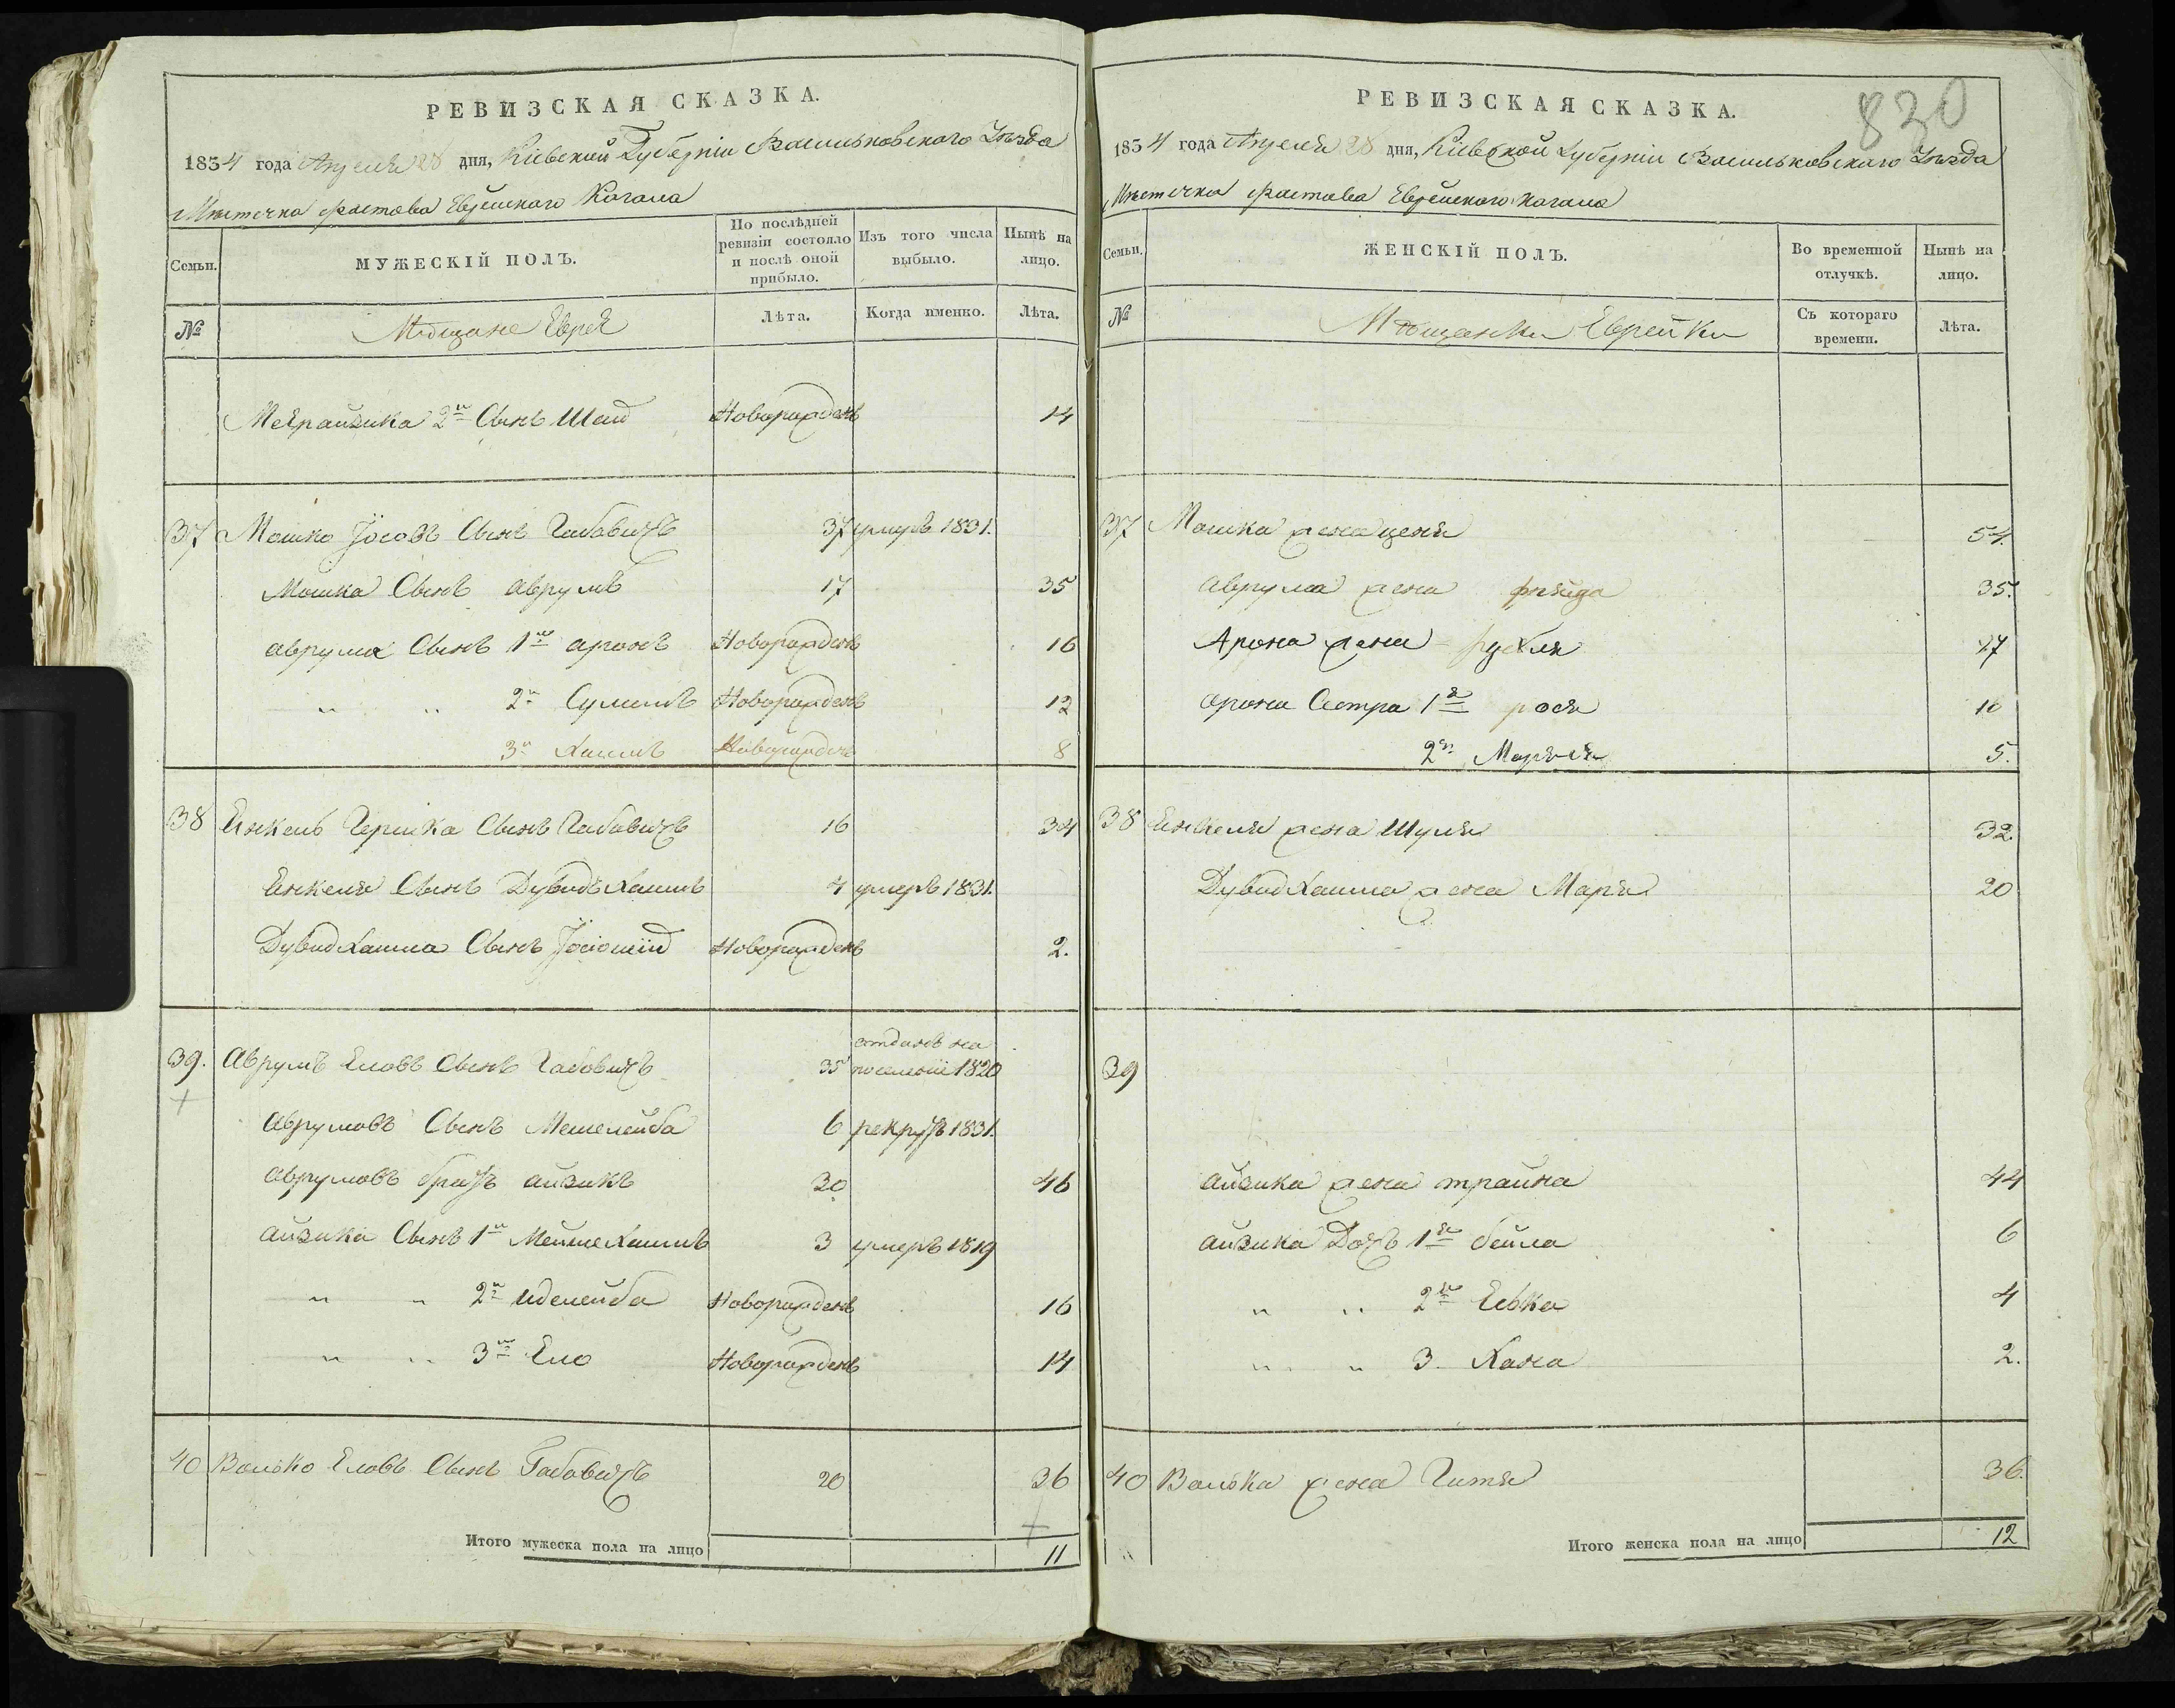 РЕВИЗСКАЯ СКАЗКА.
1834 года Апреля 28 дня, Кіевской Губерніи Васильковскаго Уѣзда
Мѣстечка Фастова Еврейскаго Кагала
Семьи.
МУЖЕСКІЙ ПОЛЪ.
По послѣдней ревизіи состояло и послѣ оной прибыло.
Изъ того числа выбыло.
Нынѣ на лицо.
№
Мѣщане Евреи
Лѣта.
Когда именно.
Лѣта.
2й Сынъ Шая Новорожденъ 14
37 Мошко Іосовъ Сынъ Габовичъ 37 умеръ 1831.
Мошка Сынъ аврумъ 17 35
аврума Сынъ 1й аронъ Новорожденъ 16
" " 2й Сулимъ Новорожденъ 12
3й Хаимъ Новорожденъ 8
38 Енкель Гершка Сынъ Габовичъ 16 34
Енкеля Сынъ Дувидъ Хаимъ 4 умеръ 1831.
Дувид Хаима Сынъ Новорожденъ 2.
39. Аврумъ Еловъ Сынъ Габовичъ 35 отданъ на поселеніе 1820
аврумовъ Сынъ Мешелейба 6 рекрутъ 1831.
аврумовъ братъ айзикъ 30 46
айзика Сынъ 1й Мейше Хаимъ 3 умеръ 1819
" " 2й иделейба Новорожденъ 16
" " 3й Ело Новорожденъ 14
40 Волько Еловъ Сынъ Габовичъ 20 36
Итого мужеска пола на лицо 11
830
РЕВИЗСКАЯ СКАЗКА.
1834 года Апреля 28 дня, Кіевской Губерніи Васильковскаго Уѣзда
Мѣстечка Фастова Еврейскаго Кагала
Семьи.
ЖЕНСКІЙ ПОЛЪ.
Во временной отлучкѣ.
Нынѣ на лицо.
№
Мѣщанки Еврейки
Съ котораго времени.
Лѣта.
37 Мошка жена ценя 54.
аврума жена фрейда 35.
Арона жена рухля 17
арона Сестра 1я рося 10
2я Марьям 5.
38 Енкеля жена Шуля 32.
Дувид Хаима жена Маря 20
39
айзика жена трайна 44
айзика Дочь 1я бейла 6
" " 2я Евка 4
" " 3. Хана 2.
40 Волька жена Гитя 36.
Итого женска пола на лицо 12